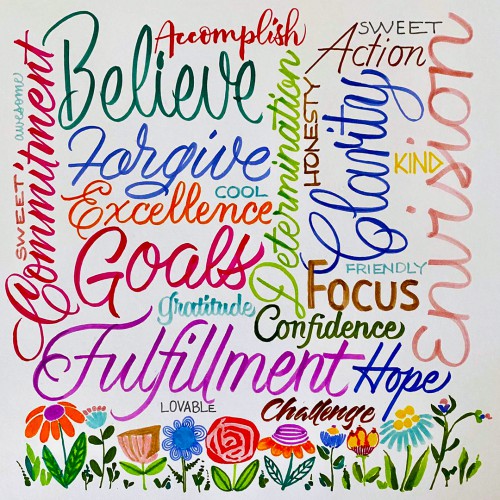 Accomplish
SWEET
Action
Believe
awesome
Commitment
SWEET
Forgive
COOL
Excellence
Determination
HONESTY
Clarity
KIND
Envision
Goals
FRIENDLY
Focus
gratitude
Confidence
Fulfillment
Hope
LOVABLE
Challenge